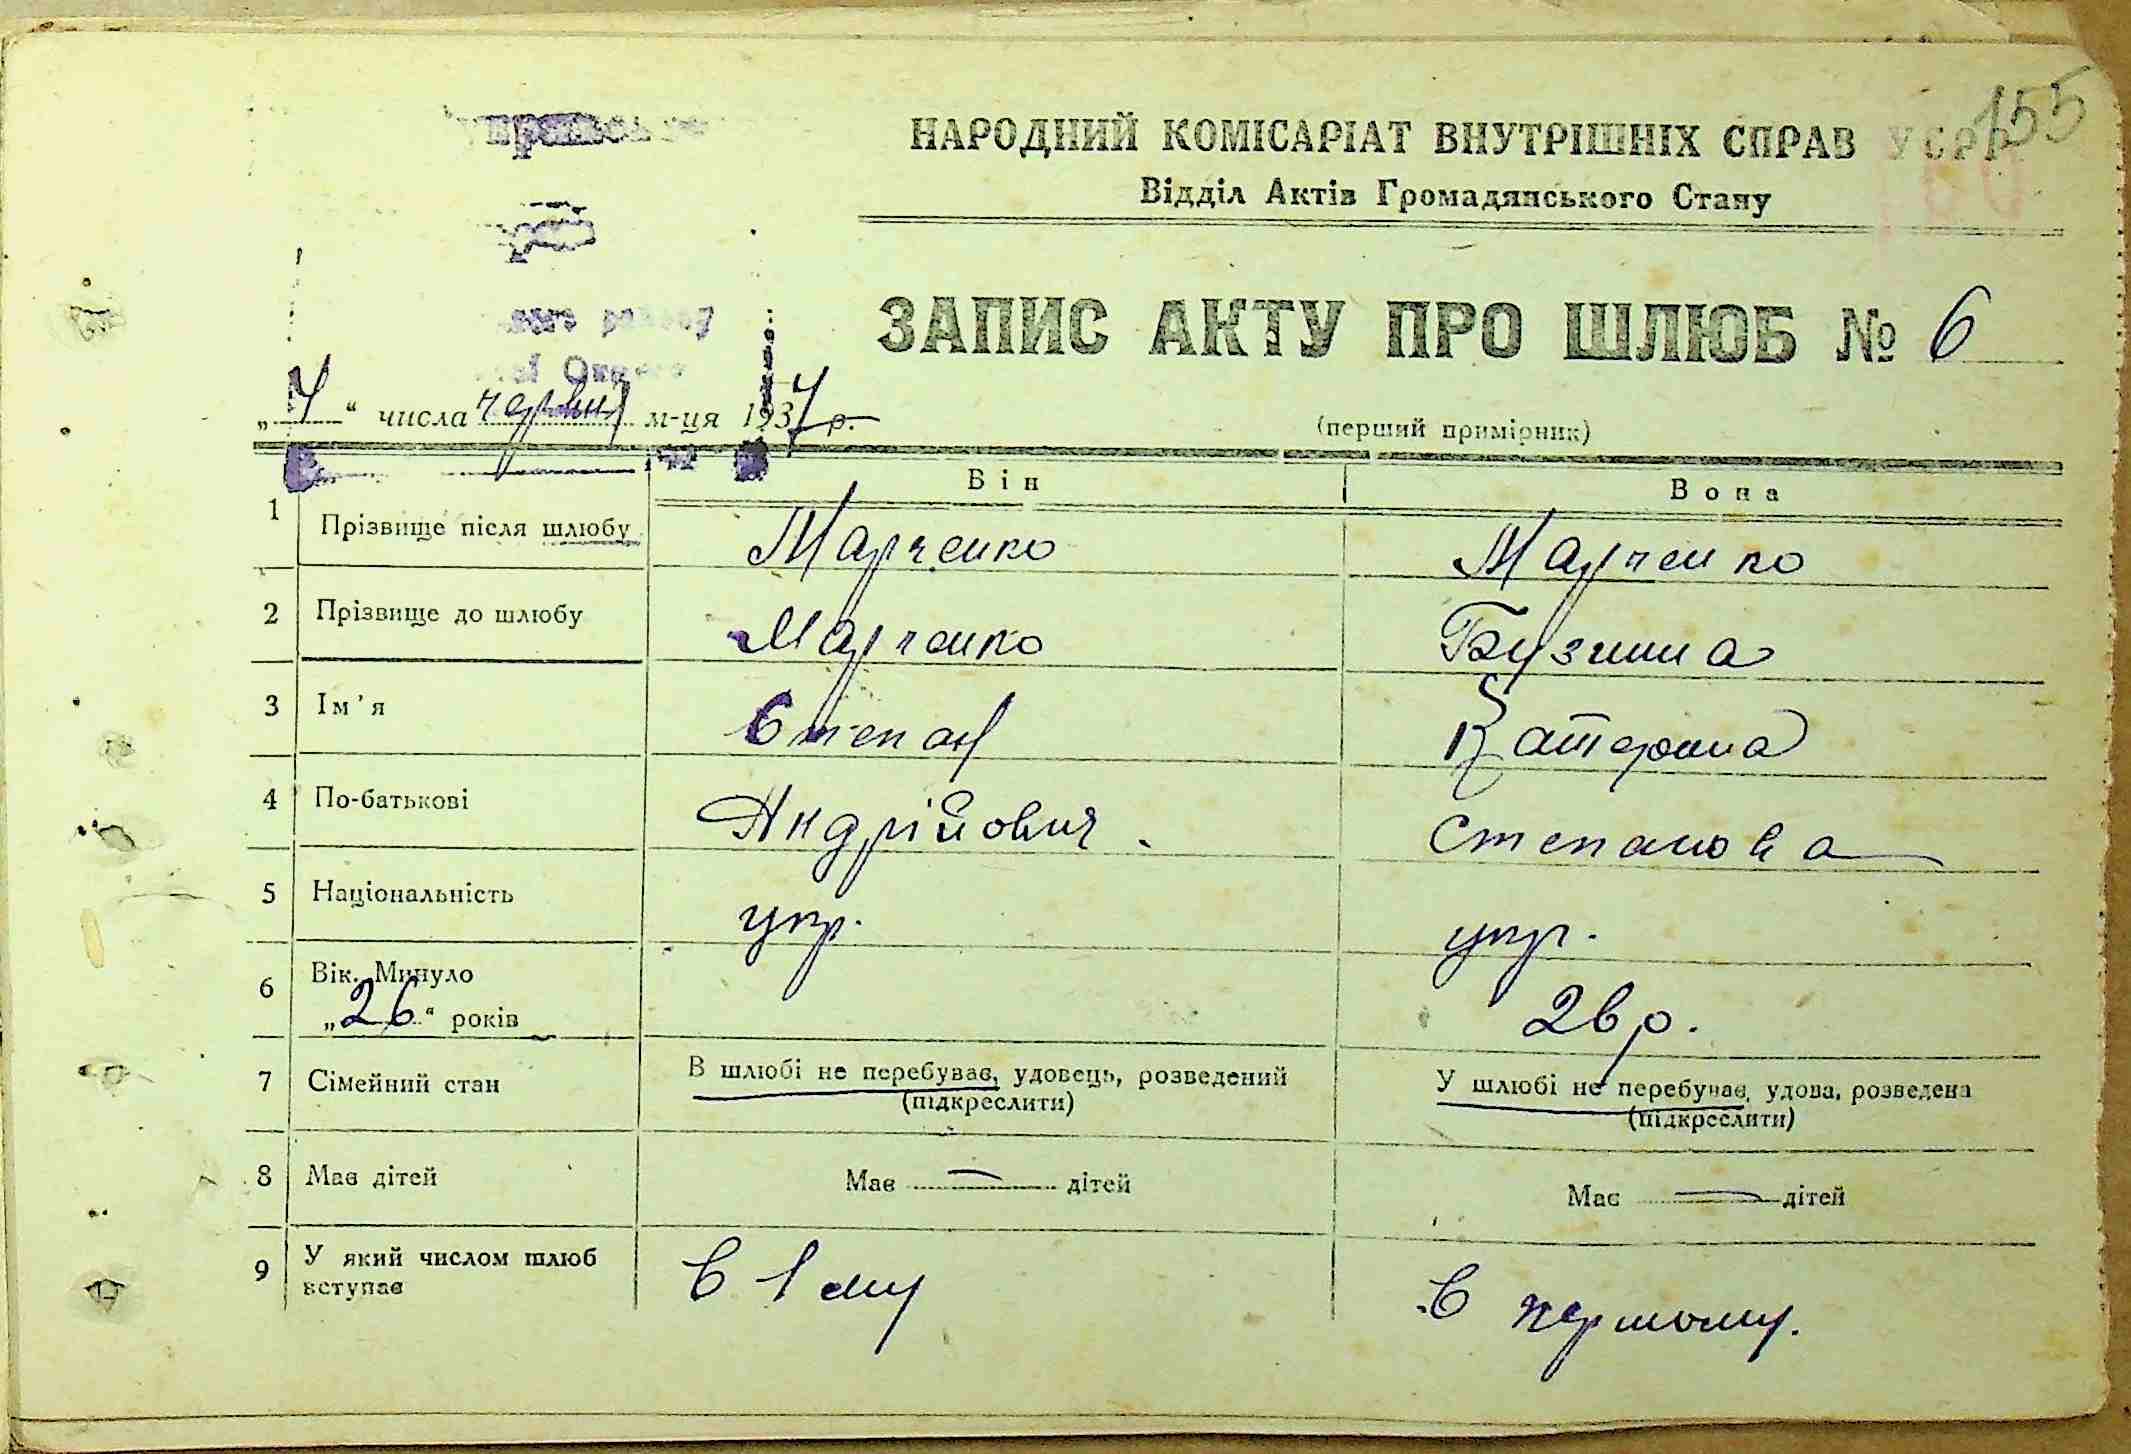 155
НАРОДНИЙ КОМІСАРІАТ ВНУТРІШНІХ СПРАВ УСРР
Відділ Актів Громадянського Стану
ЗАПИС АКТУ ПРО ШЛЮБ № 6
„ “ числа червня м-ця 1937 р.
(перший примірник)
Він Вона
1 Прізвище після шлюбу Марченко Марченко
2 Прізвище до шлюбу Марченко Бузинна
3 Ім'я Степан Катерина
4 По-батькові Андрійович Степановна
5 Національність укр. укр.
6 Вік. Минуло
„26“ років 26 р.
7 Сімейний стан В шлюбі не перебуває, удовець, розведений У шлюбі не перебуває, удова, розведена
(підкреслити) (підкреслити)
8 Має дітей Має — дітей Має — дітей
9 У який числом шлюб
вступає В 1му В першому.